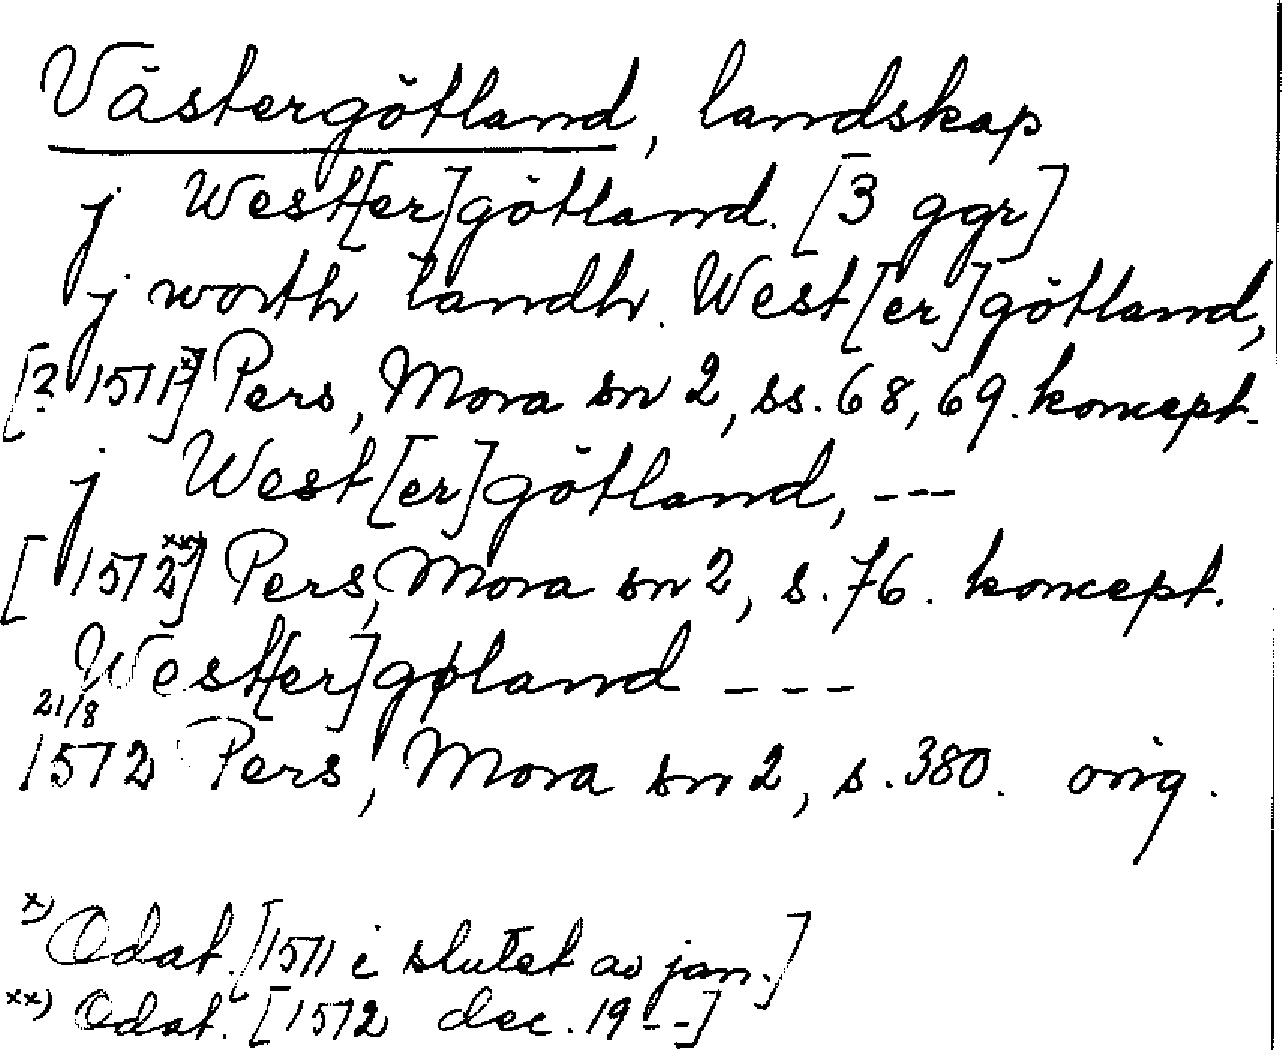 Västergötland, landskap
j West[er]götland. [3 ggr]
j worth landh. West[er]götland,
[? 1571 x)] Pers, Mora sn 2, ss. 68, 69. koncept.
j West[er]götland, ---
[1572 xx)] Pers, Mora sn 2, s. 76. koncept.
West[er]gøland ---
21/8
1572 Pers, Mora sn 2, s. 380. orig.
x) Odat. [1571 i slutet av jan.]
xx) Odat. [1572 dec. 19--]